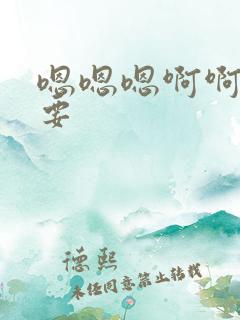 嗯嗯嗯啊啊
要
德熙
未经同意禁止转载